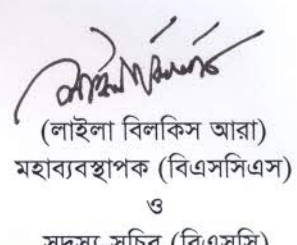 (লাইলা বিলকিস আরা)
মহাব্যবস্থাপক (বিএসসিএস)
ও
সদস্য সচিব (বিএসসি)